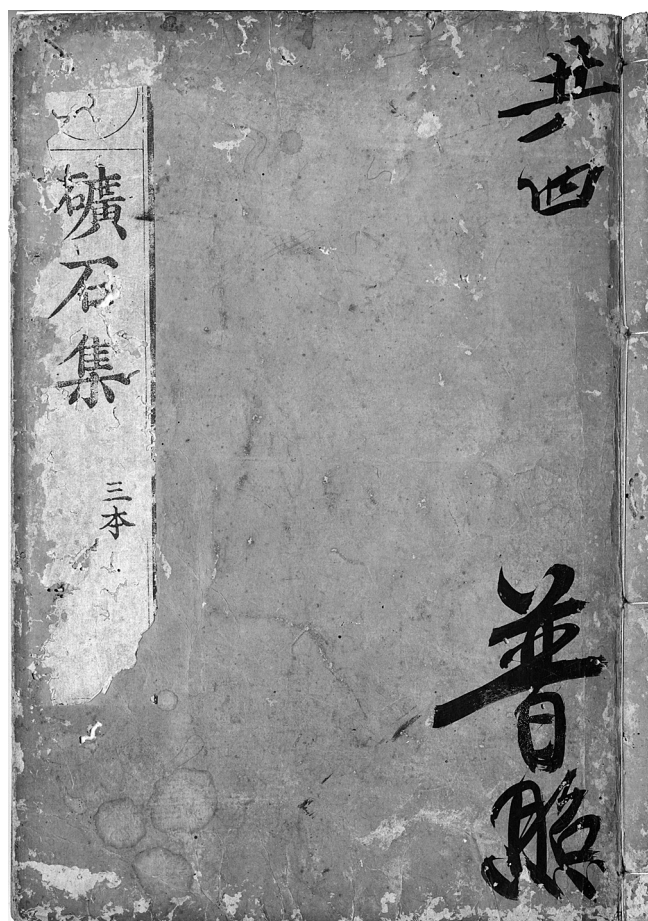 共四
普照
礦石集
三本